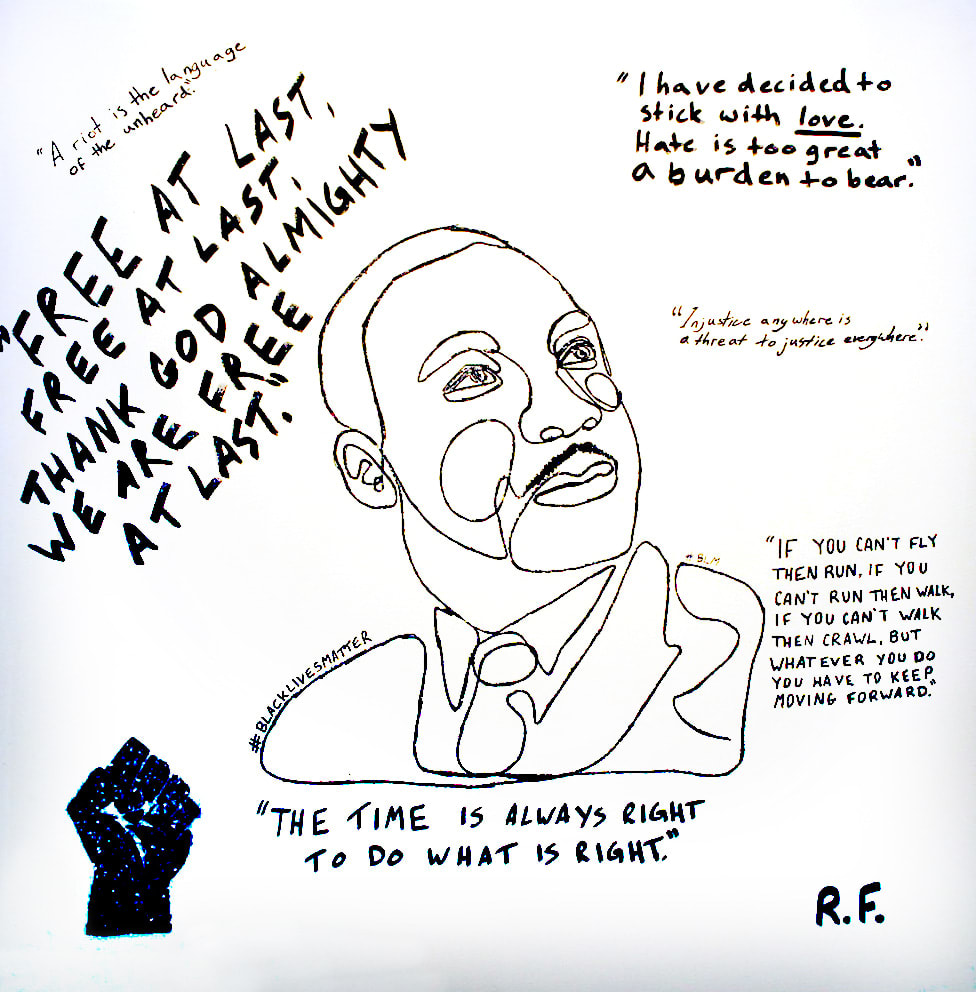 "A riot is the language
of the unheard."
"FREE AT LAST,
FREE AT LAST,
THANK GOD ALMIGHTY
WE ARE FREE
AT LAST."
"I have decided to
stick with love.
Hate is too great
a burden to bear."
"Injustice anywhere is
a threat to justice everywhere."
#BLM
"IF YOU CAN'T FLY
THEN RUN, IF YOU
CAN'T RUN THEN WALK,
IF YOU CAN'T WALK
THEN CRAWL, BUT
WHATEVER YOU DO
YOU HAVE TO KEEP
MOVING FORWARD."
#BLACKLIVESMATTER
"THE TIME IS ALWAYS RIGHT
TO DO WHAT IS RIGHT."
R.F.